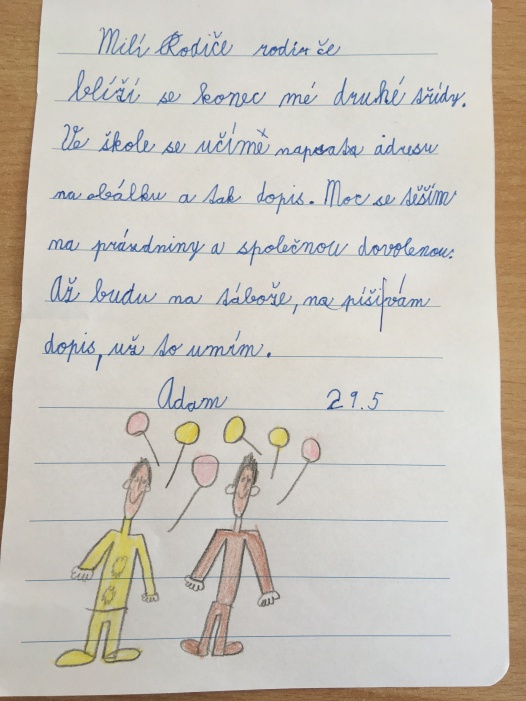 Milí Rodiče rodiče
blíží se konec mé druhé třídy.
Ve škole se učíme napsata adresu
na obálku a tak dopis. Moc se těším
na prázdniny a společnou dovolenou.
Až budu na táboře, na píši vám
dopis, už to umím.
Adam 29.5